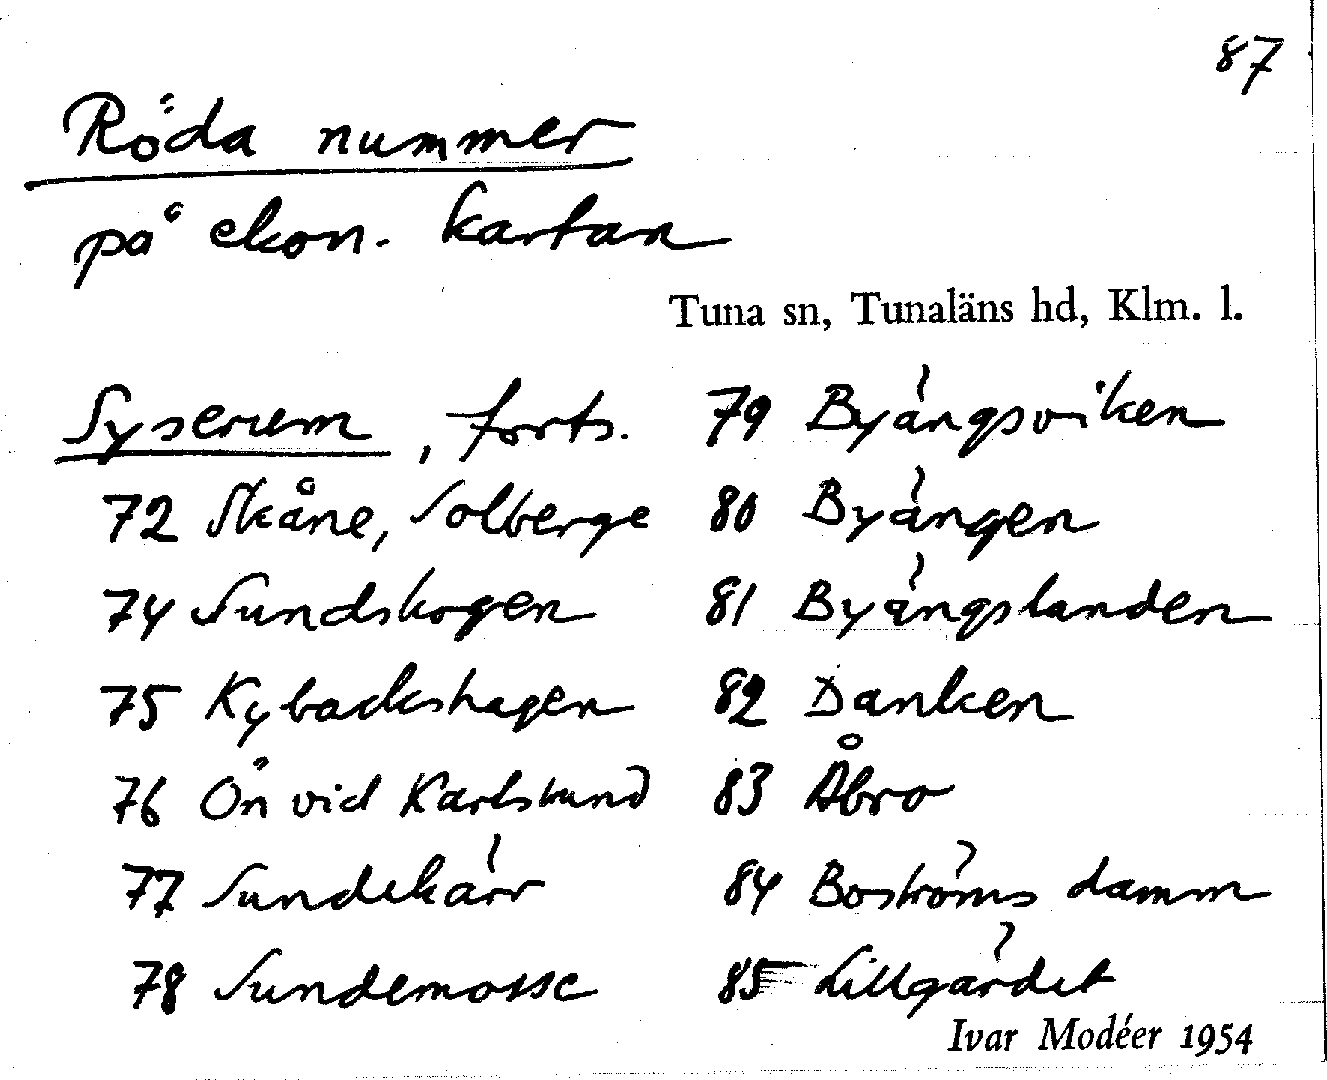 87
Röda nummer
på ekon. kartan
Tuna sn, Tunaläns hd, Klm. l.
Syserum, forts.
72 Skåne, Solberge
74 Sundskogen
75 Kybackshagen
76 Ön vid Karlslund
77 Sundekärr
78 Sundemosse
79 Byängsviken
80 Byängen
81 Byängslanden
82 Danken
83 Åbro
84 Boströms damm
85 Lillgärdet
Ivar Modéer 1954